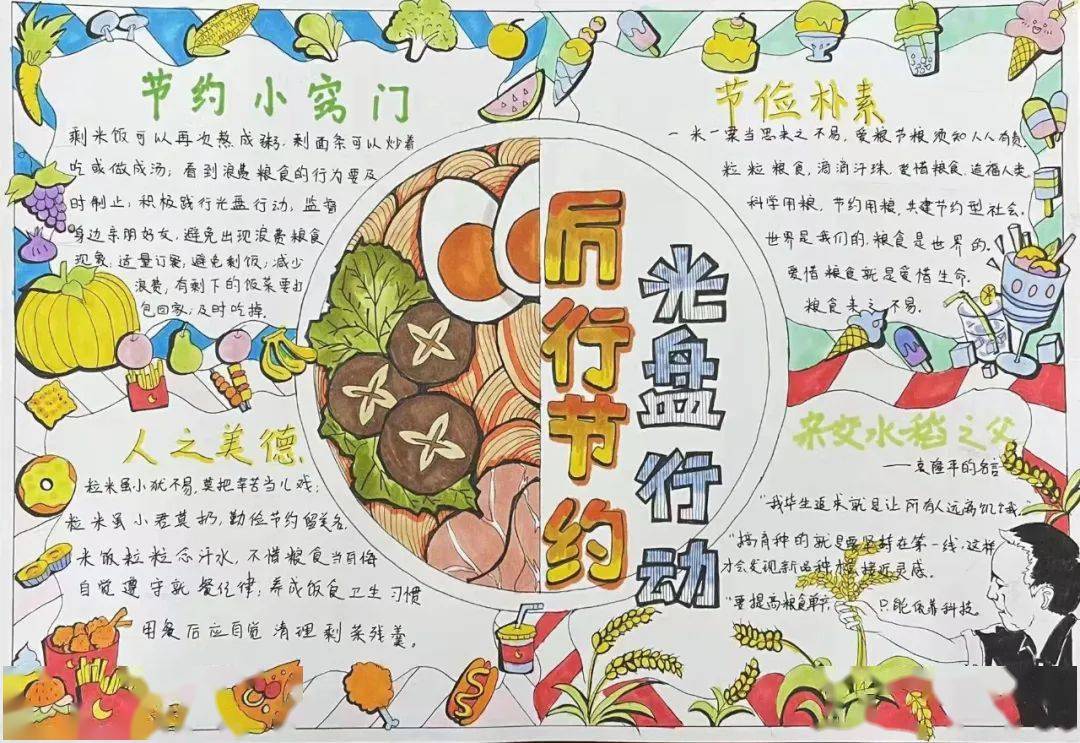 节约小窍门
剩米饭可以再次熬成粥,剩面条可以炒着
吃或做成汤;看到浪费粮食的行为要及
时制止;积极践行光盘行动,监督
身边亲朋好友,避免出现浪费粮食
现象,适量订餐,避免剩饭;减少
浪费,有剩下的饭菜要打
包回家;及时吃掉.
人之美德
粒米虽小犹不易,莫把辛苦当儿戏;
粒米虽小君莫扔,勤俭节约留美名,
米饭粒粒念汗水,不惜粮食当自悔
自觉遵守就餐纪律;养成饭食卫生习惯
用餐后应自觉清理剩菜残羹。
厉行节约
光盘行动
节俭朴素
一米一粟当思来之不易,爱粮节粮须知人人有责
粒粒粮食,滴滴汗珠.爱惜粮食.造福人类.
科学用粮,节约用粮,共建节约型社会.
世界是我们的,粮食是世界的.
爱惜粮食就是爱惜生命.
粮食来之不易.
杂交水稻之父
——袁隆平的名言
"我毕生追求就是让所有人远离饥饿.
"搞育种的就是要坚持在第一线,这样
才会发现新品种 接近灵感.
"要提高粮食单产 只能依靠科技.